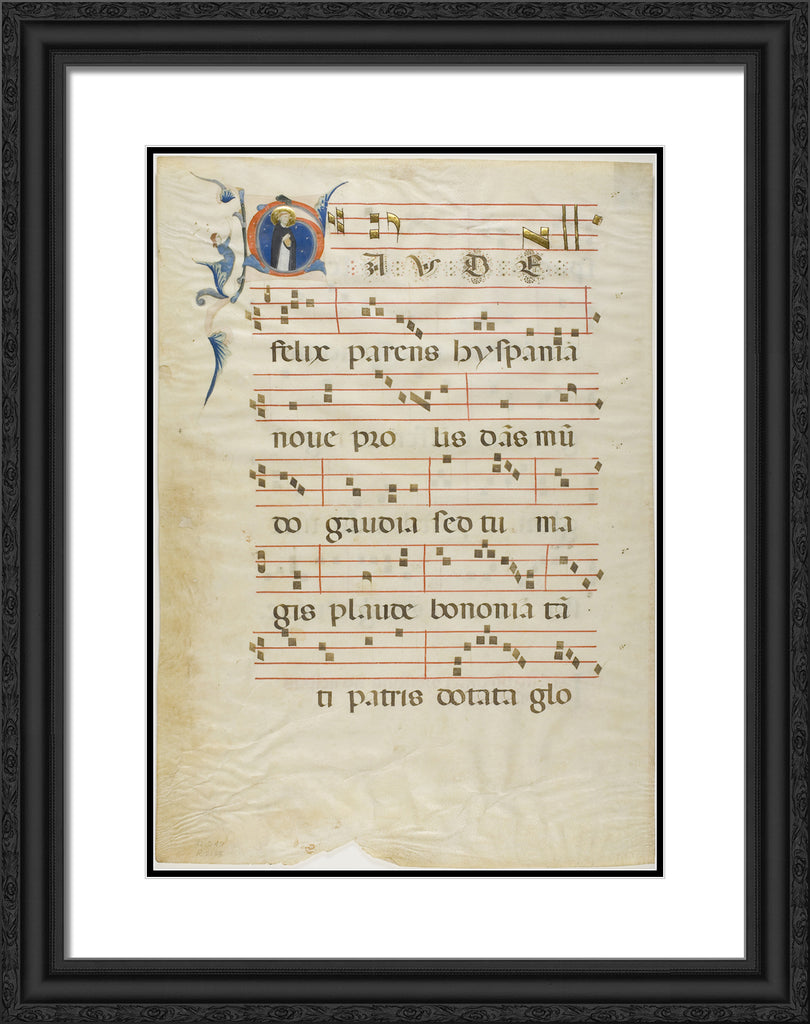 GAVDE
felix parens hyspania
noue pro lis dãs mũ
do gaudia sed tu ma
gis plaude bononia tã
ti patris dotata glo